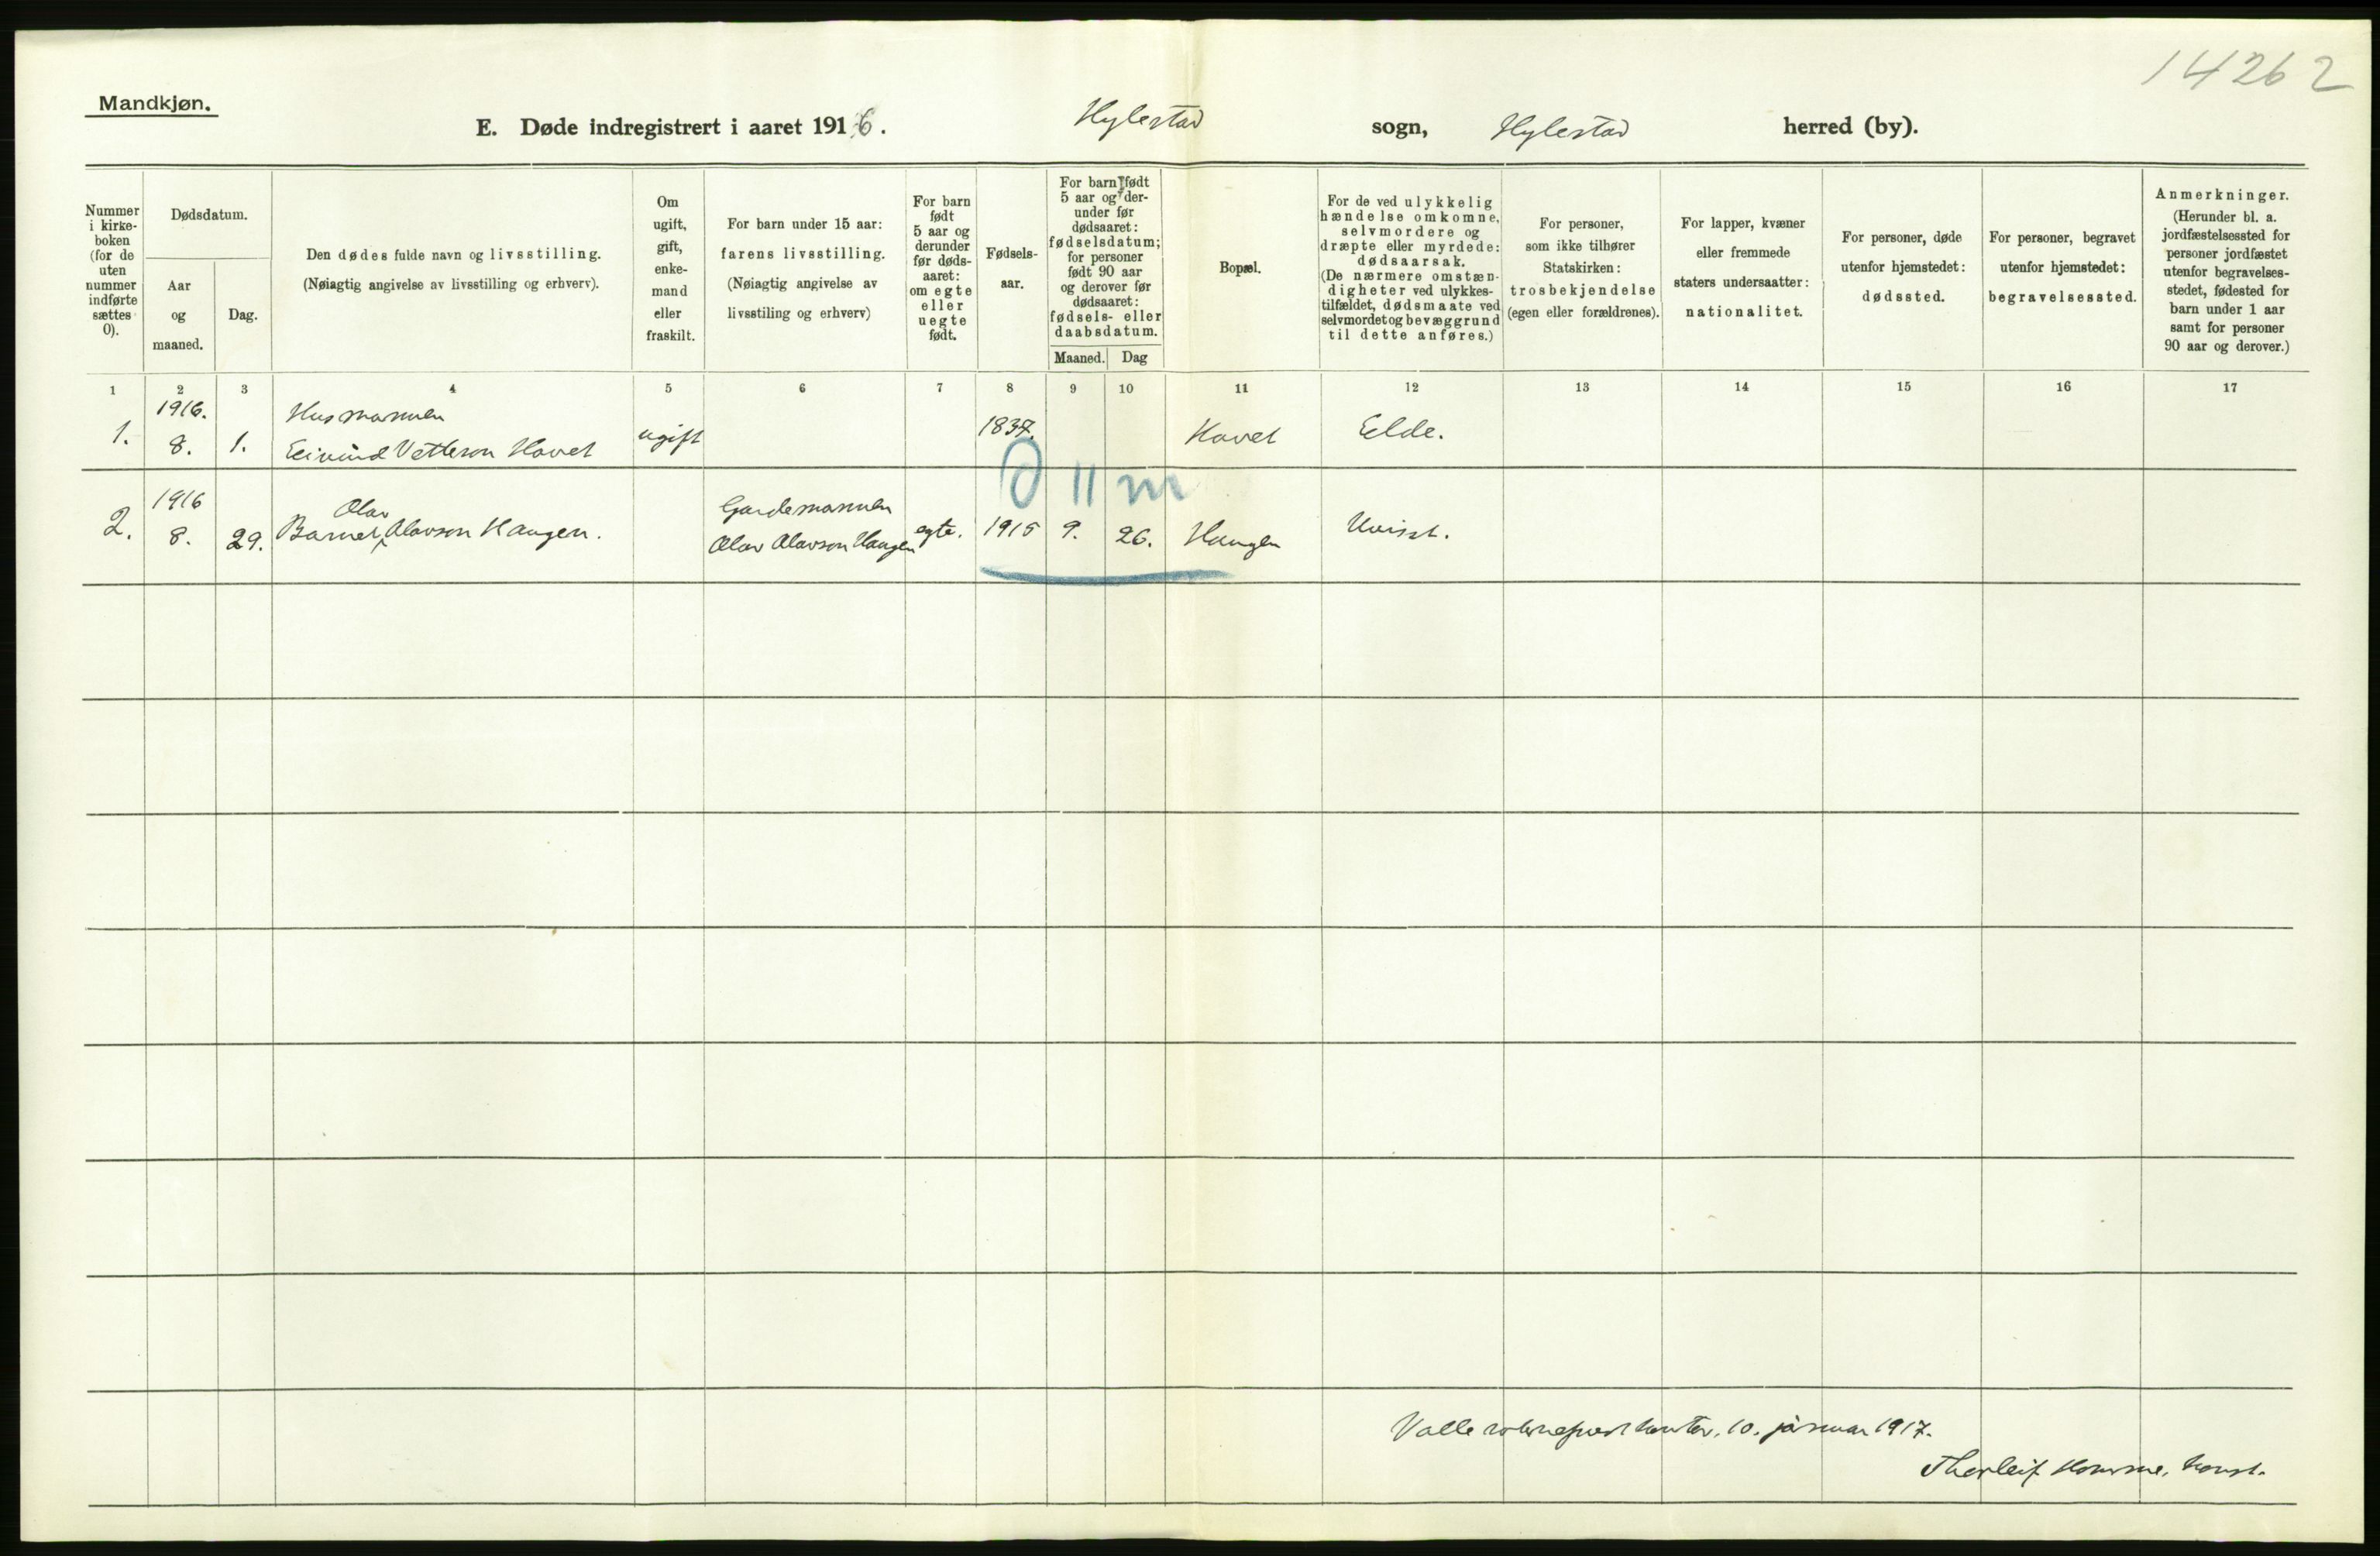 14262
Mandkjøn.
E. Døde indregistrert i aaret 1916. Hylestad sogn, Hylestad herred (by).
Nummer
i kirke-
boken
(for de
uten
nummer
indførte
sættes
0).
Dødsdatum.
Aar
og
maaned.
Dag.
Den dødes fulde navn og livsstilling.
(Nøiagtig angivelse av livsstilling og erhverv).
Om
ugift,
gift,
enke-
mand
eller
fraskilt.
For barn under 15 aar:
farens livsstilling.
(Nøiagtig angivelse av
livsstiling og erhverv)
For barn
født
5 aar og
derunder
før døds-
aaret:
om egte
eller
uegte
født.
Fødsels-
aar.
For barn født
5 aar og der-
under før
dødsaaret:
fødselsdatum;
for personer
født 90 aar
og derover før
dødsaaret:
fødsels- eller
daabsdatum.
Maaned. Dag
Bopæl.
For de ved ulykkelig
hændelse omkomne,
selvmordere og
dræpte eller myrdede:
dødsaarsak.
(De nærmere omstæn-
digheter ved ulykkes-
tilfældet, dødsmaate ved
selvmordet og bevæggrund
til dette anføres.)
For personer,
som ikke tilhører
Statskirken:
trosbekjendelse
(egen eller forældrenes).
For lapper, kvæner
eller fremmede
staters undersaatter:
nationalitet.
For personer, døde
utenfor hjemstedet:
dødssted.
For personer, begravet
utenfor hjemstedet:
begravelsessted.
Anmerkninger.
(Herunder bl. a.
jordfæstelsessted for
personer jordfæstet
utenfor begravelses-
stedet, fødested for
barn under 1 aar
samt for personer
90 aar og derover.)
1 2 3 4 5 6 7 8 9 10 11 12 13 14 15 16 17
1916. Husmannen
1. 8. 1. Eivind Vetleson Hovet ugift 1837. Hovet Elde.
0 11 m
1916 Olav Gardemannen
2. 8. 29. Barnet Olavson Haugen. Olav Olavson Haugen egte. 1915 9. 26. Haugen Uvisst.
Valle sokneprestkontor, 10. januar 1917.
Thorleif Homme, konst.